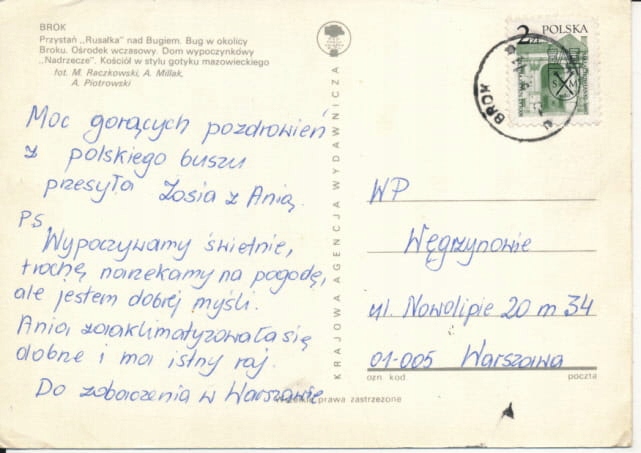 BROK
Przystań „Rusałka" nad Bugiem. Bug w okolicy
Broku. Ośrodek wczasowy. Dom wypoczynkowy
„Nadrzecze". Kościół w stylu gotyku mazowieckiego
fot. M. Raczkowski, A. Millak,
A. Piotrowski
Moc gorących pozdrowień
z polskiego buszu
przesyła Zosia z Anią.
PS.
Wypoczywamy świetnie,
trochę narzekamy na pogodę,
ale jestem dobrej myśli.
Ania zaaklimatyzowała się
dobrze i ma istny raj.
Do zobaczenia w Warszawie
KRAJOWA AGENCJA WYDAWNICZA
2 ZŁ POLSKA
BROK
WP
Węgrzynowie
ul. Nowolipie 20 m 34
01-005 Warszawa
ozn kod. poczta
Wszelkie prawa zastrzeżone